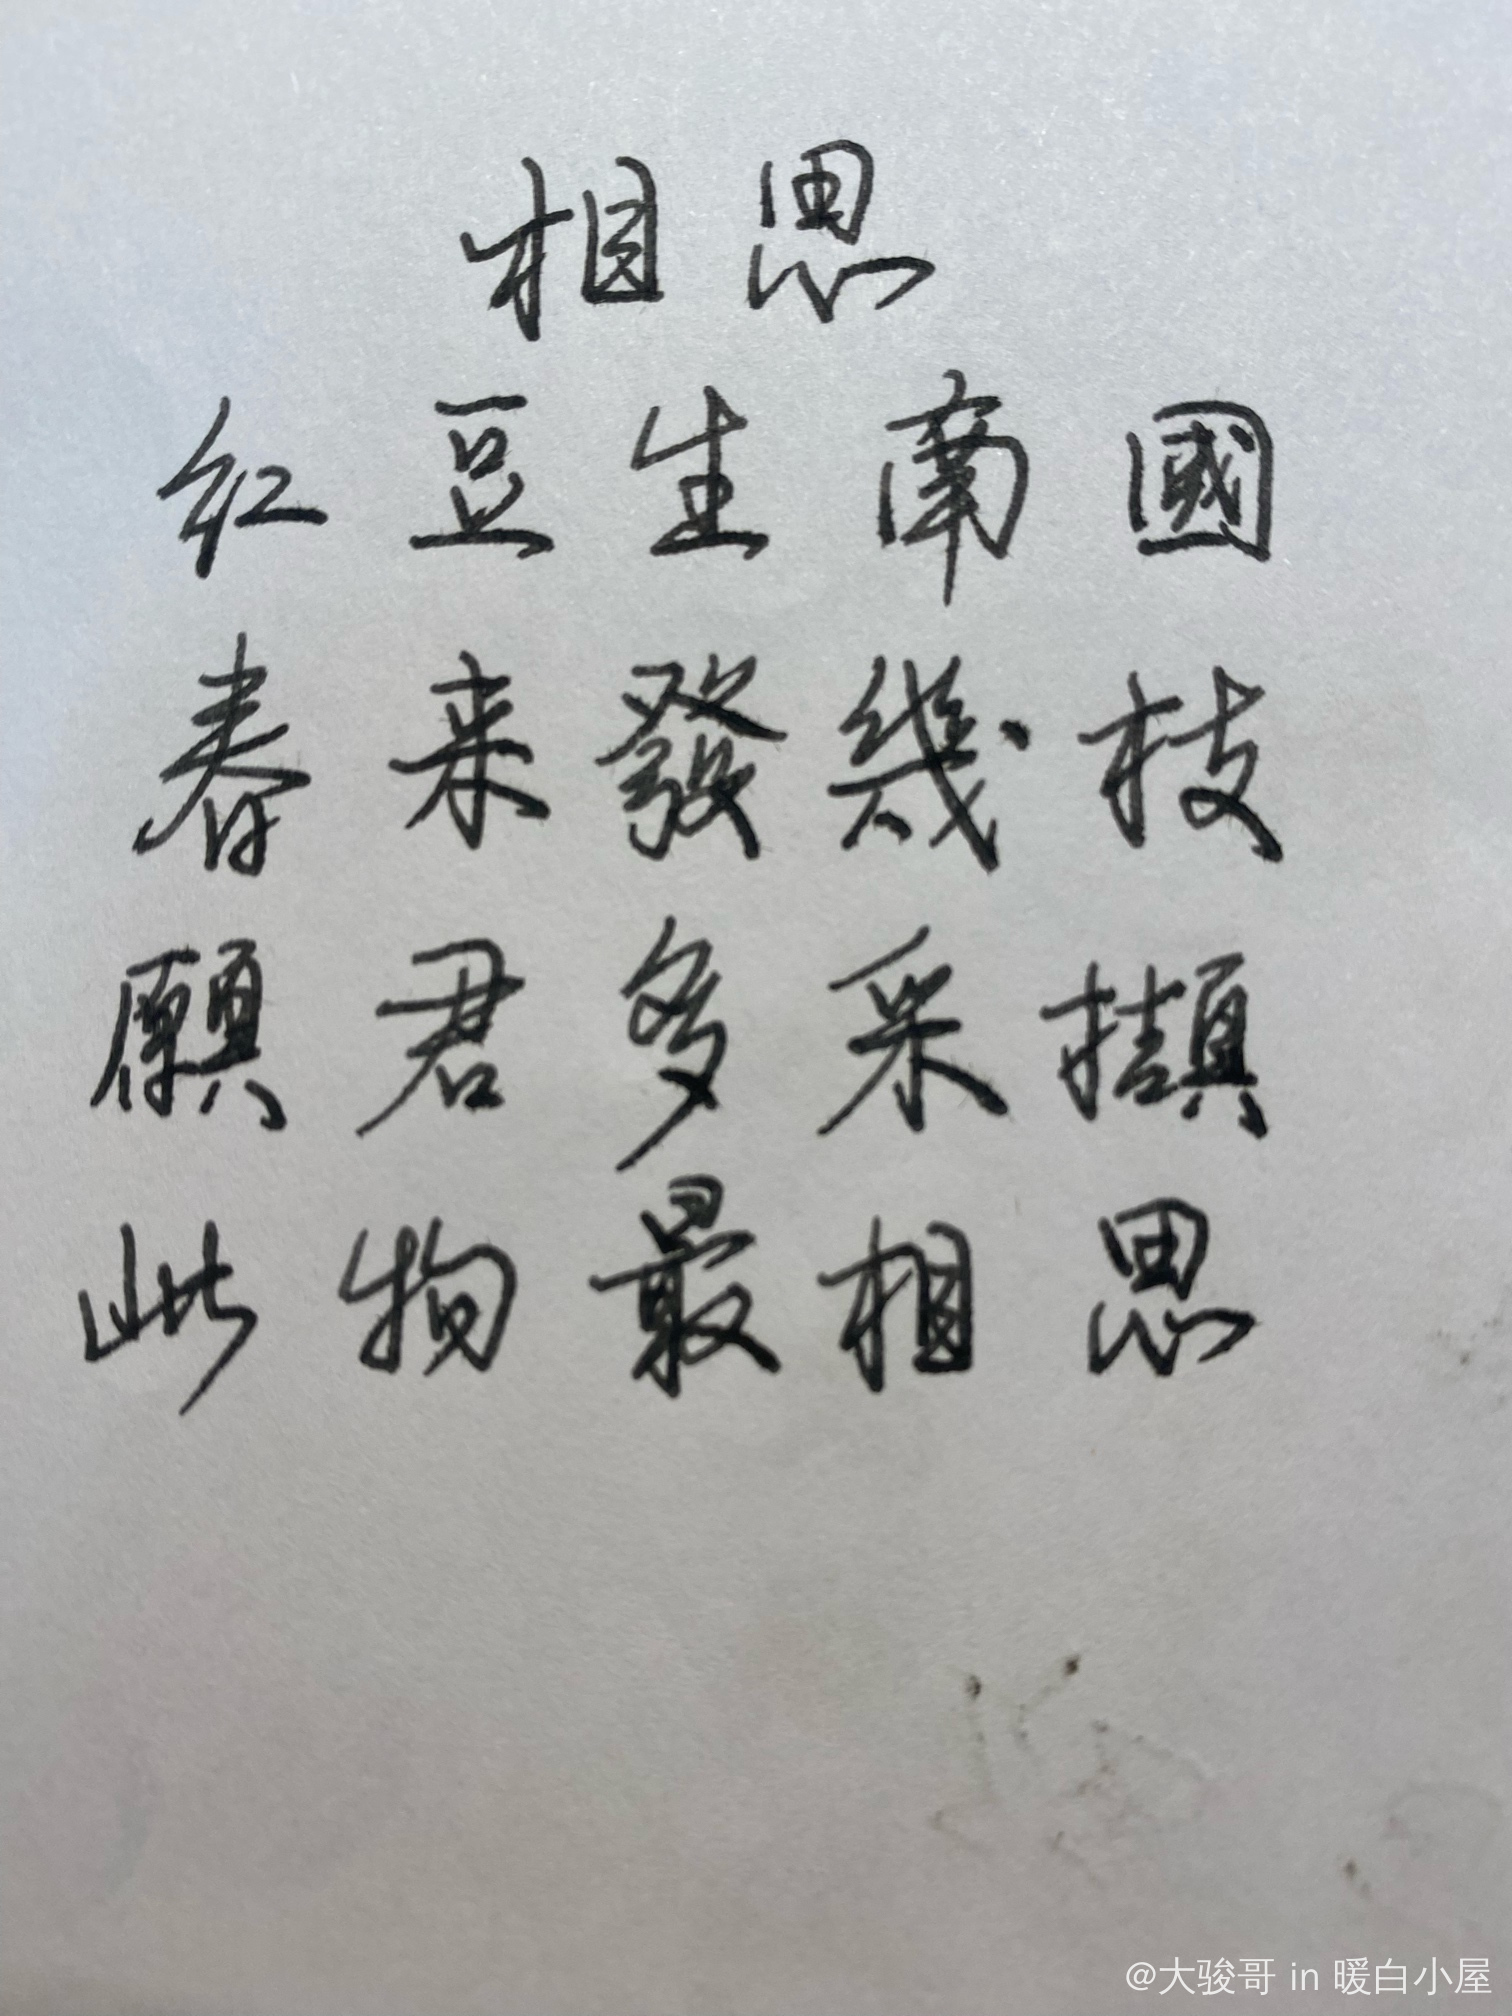 相思
红豆生南國
春来發幾枝
願君多采擷
此物最相思
@大骏哥 in 暖白小屋